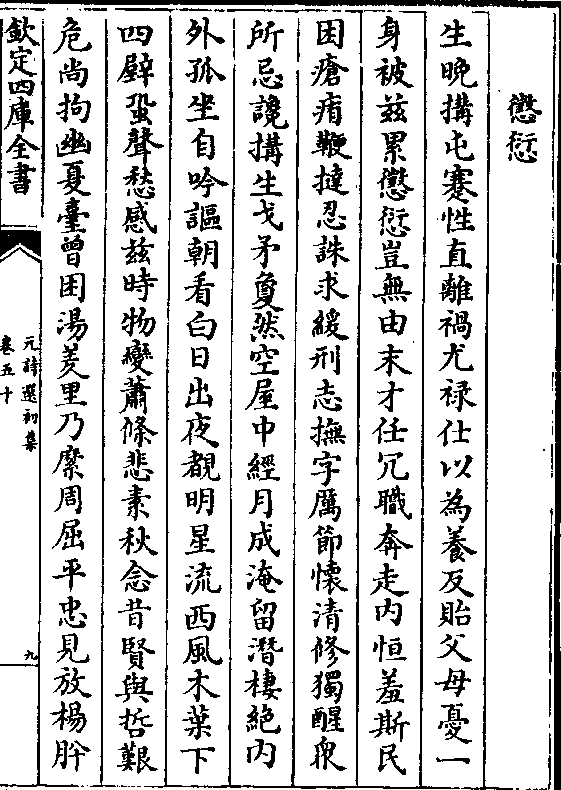 懲愆
生晚搆屯蹇性直離禍尤祿仕以為養反貽父母憂一
身被兹累懲愆豈無由末才任冗職奔走内恒羞斯民
困瘡痏鞭撻忍誅求緩刑志撫字厲節懷清修獨醒衆
所忌讒搆生戈矛敻然空屋中經月成淹留潛棲絶内
外孤坐自吟謳朝看白日出夜覩明星流西風木葉下
四壁蛩聲愁感兹時物變蕭條悲素秋念昔賢與哲艱
危尚拘幽夏臺曾困湯羑里乃縻周屈平忠見放楊肸
欽定四庫全書
元詩選初集
卷五十
九